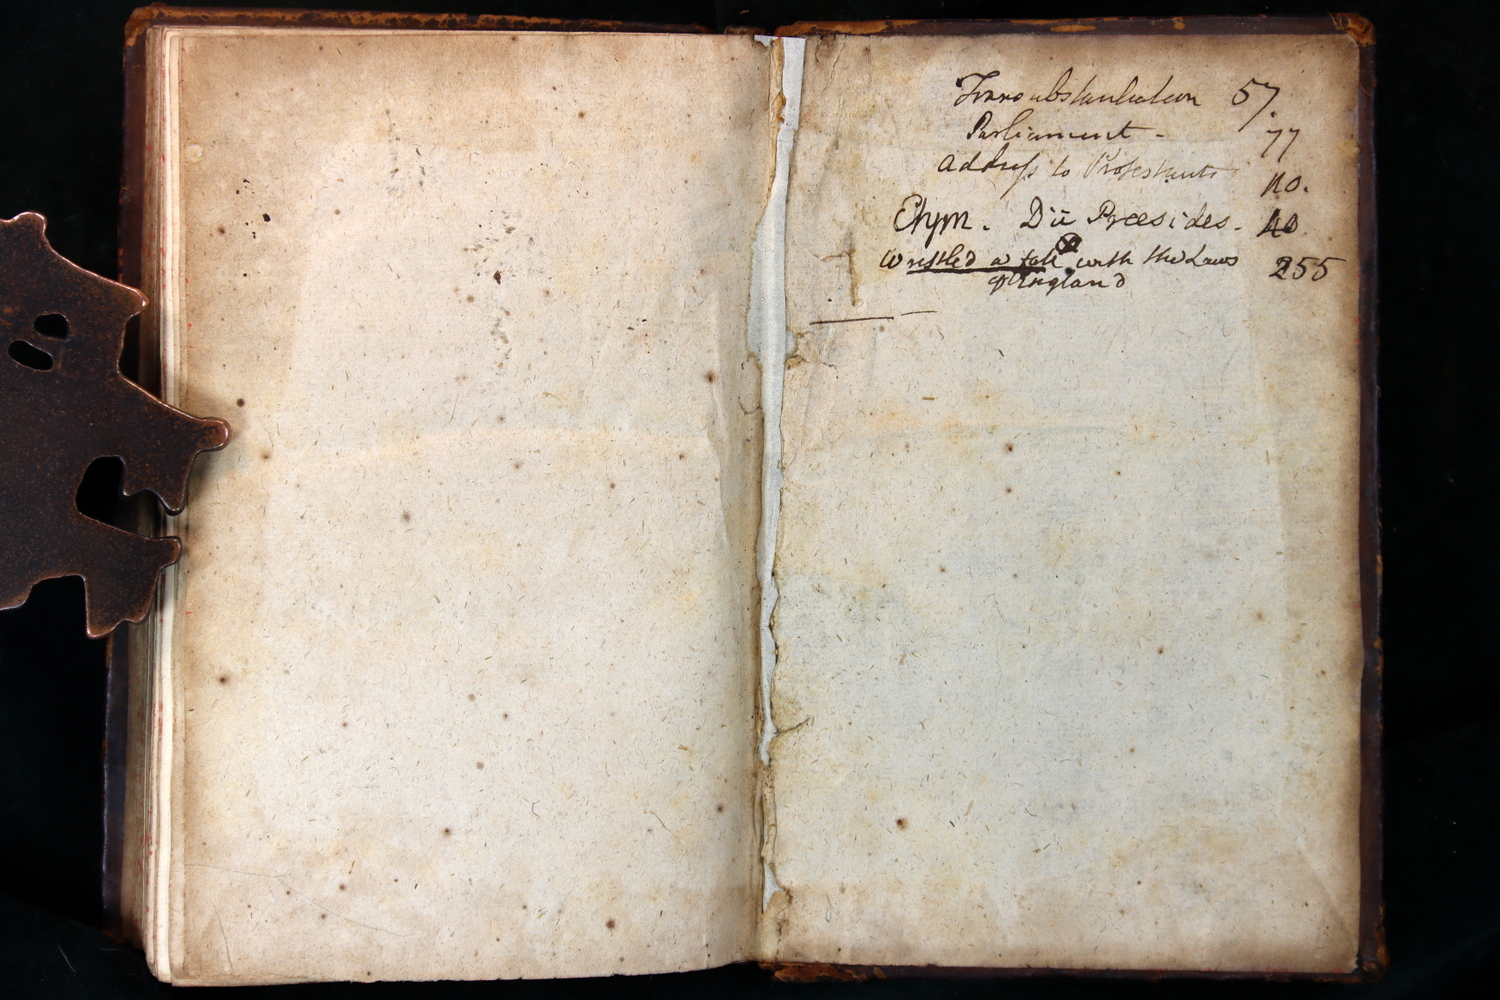 Transubstantiation 57.
Parliament - 77
Address to Protestants 110.
Etym. Dii Præsides. 110
Wrestled a fall with the Laws 255
of England